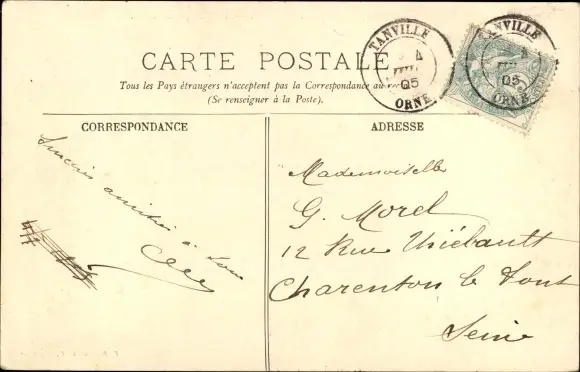 CARTE POSTALE
Tous les Pays étrangers n'acceptent pas la Correspondance au
(Se renseigner à la Poste).
TANVILLE
4
05
ORNE
TANVILLE
4
05
ORNE
CORRESPONDANCE
ADRESSE
Sincères amitiés à tous
Mademoiselle
G. Morel
12 Rue Thiébault
Charenton le Pont
Seine